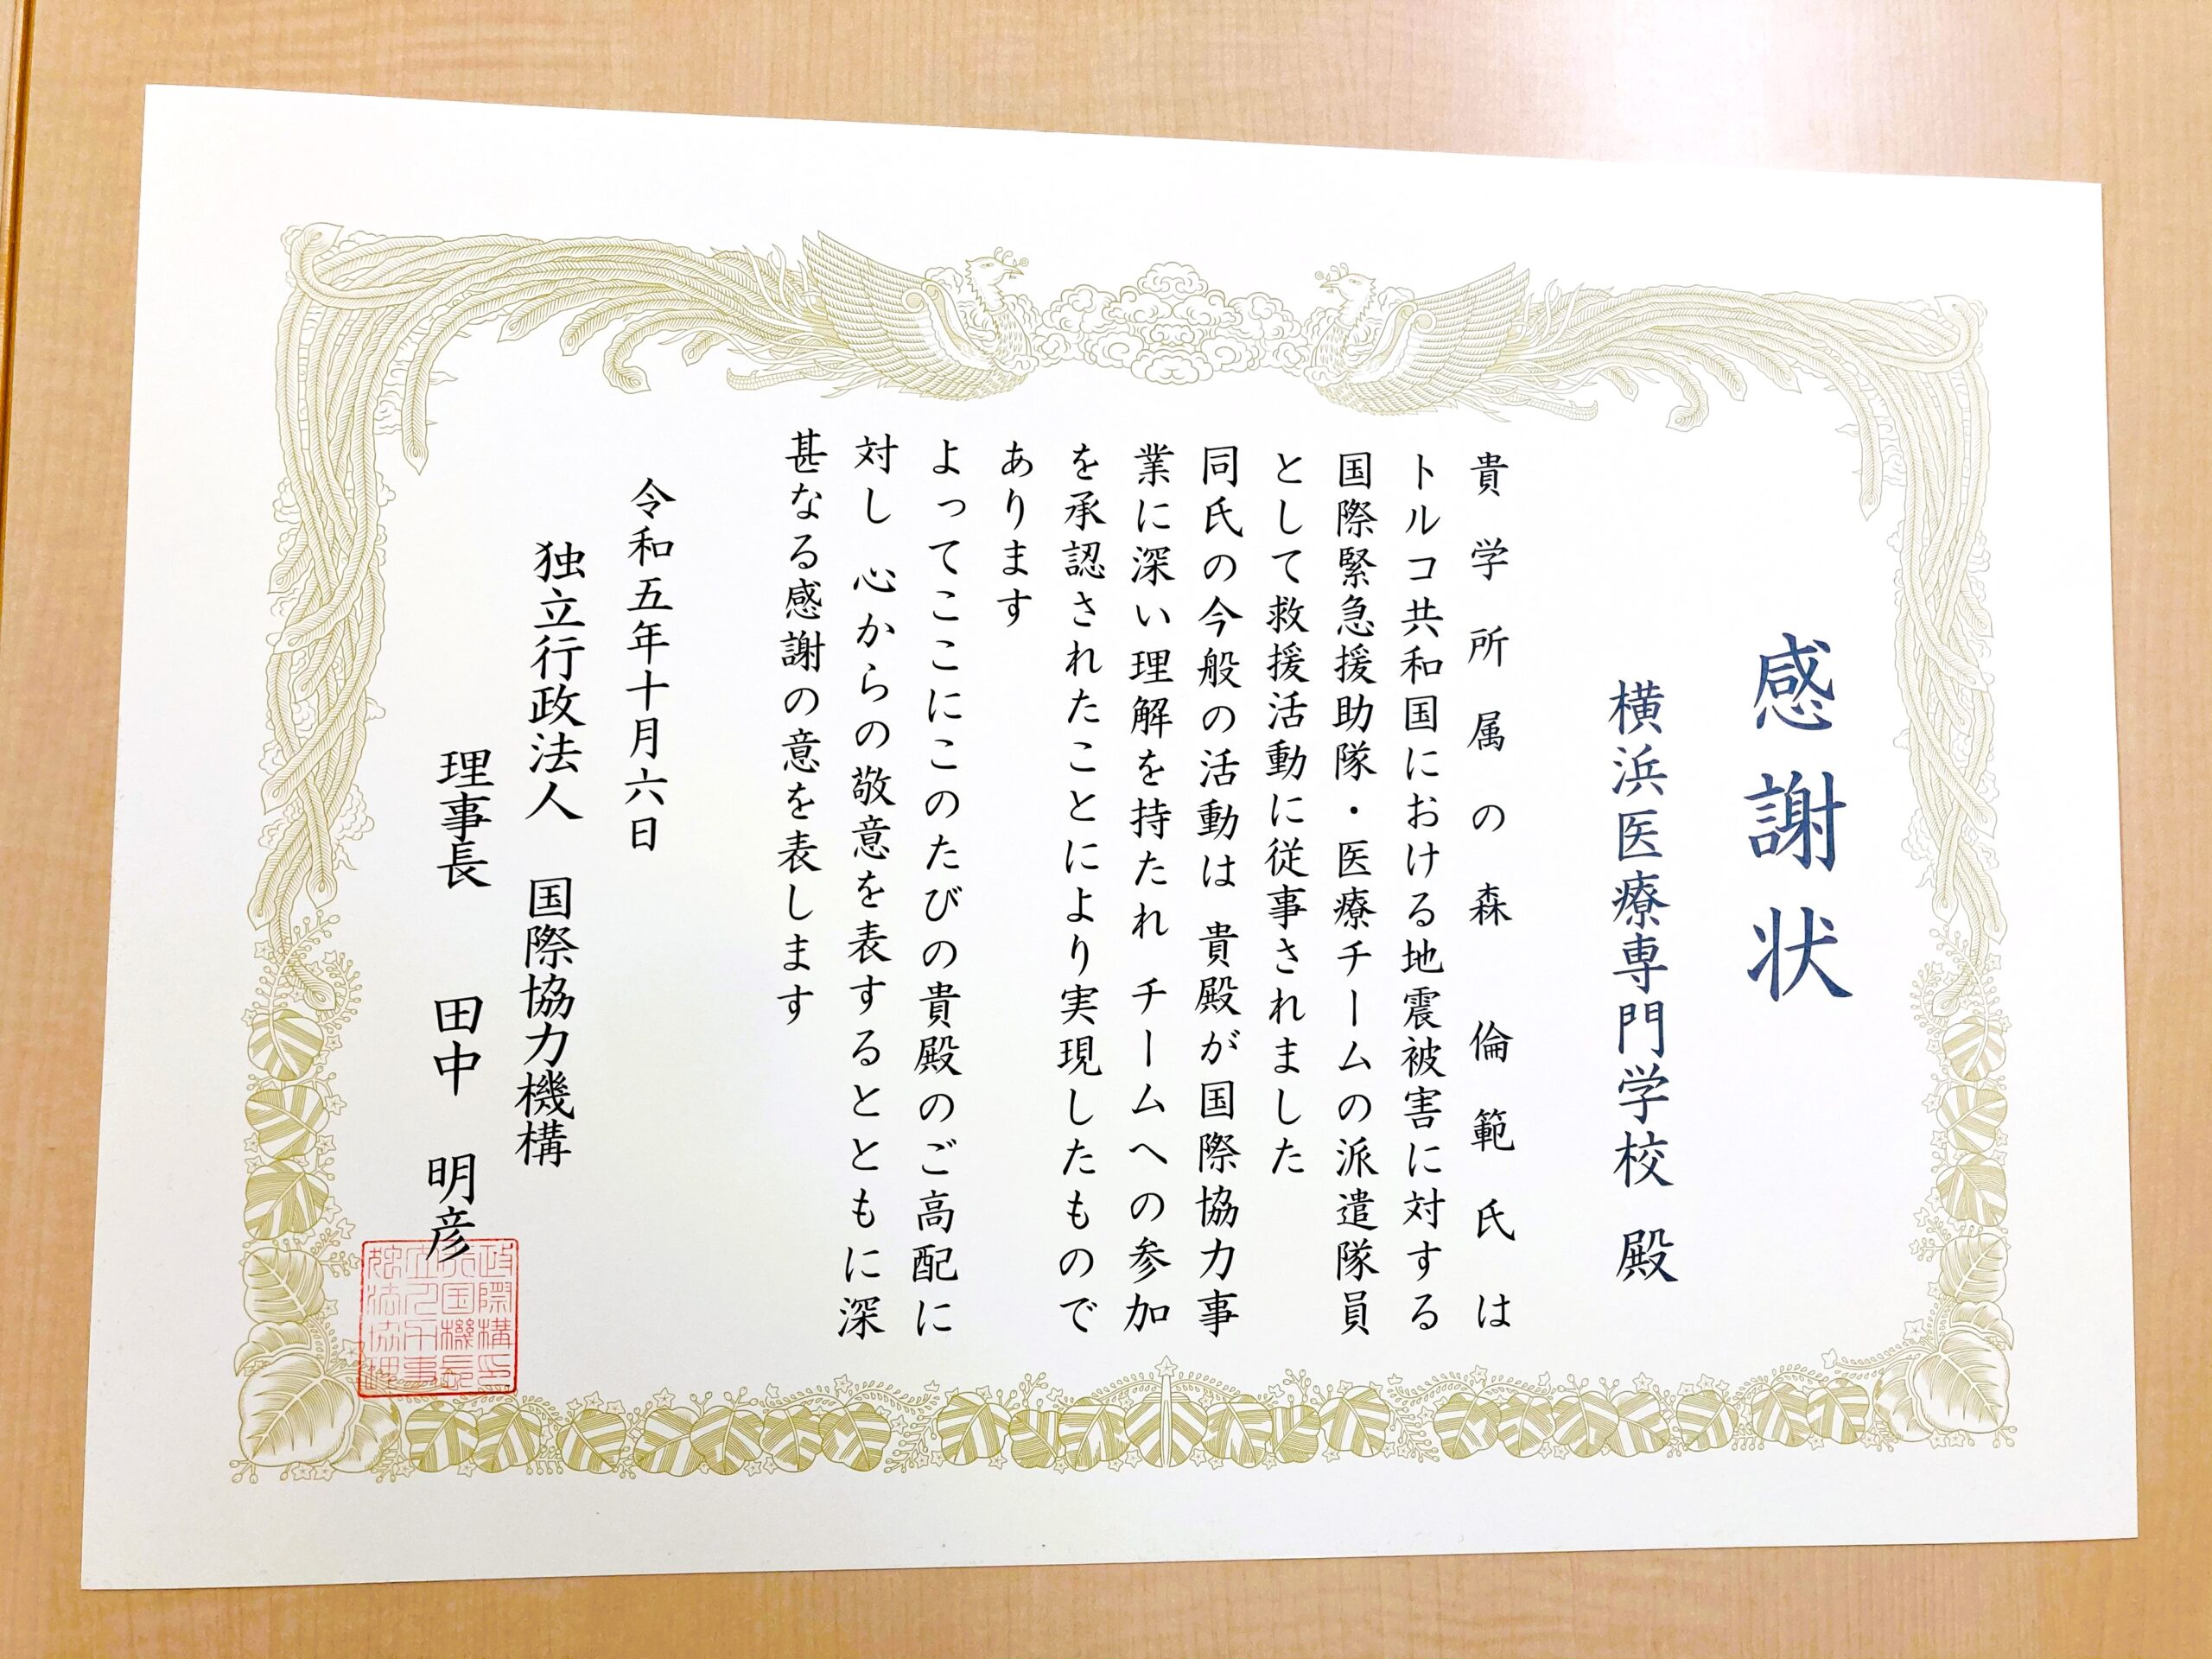 感謝状
横浜医療専門学校 殿
貴学所属の森 倫範氏は
トルコ共和国における地震被害に対する
国際緊急援助隊・医療チームの派遣隊員
として救援活動に従事されました
同氏の今般の活動は 貴殿が国際協力事
業に深い理解を持たれ チームへの参加
を承認されたことにより実現したもので
あります
よってここにこのたびの貴殿のご高配に
対し 心からの敬意を表するとともに深
甚なる感謝の意を表します
令和五年十月六日
独立行政法人 国際協力機構
理事長 田中 明彦
政際構印
行国機長
立人力事
独法協理